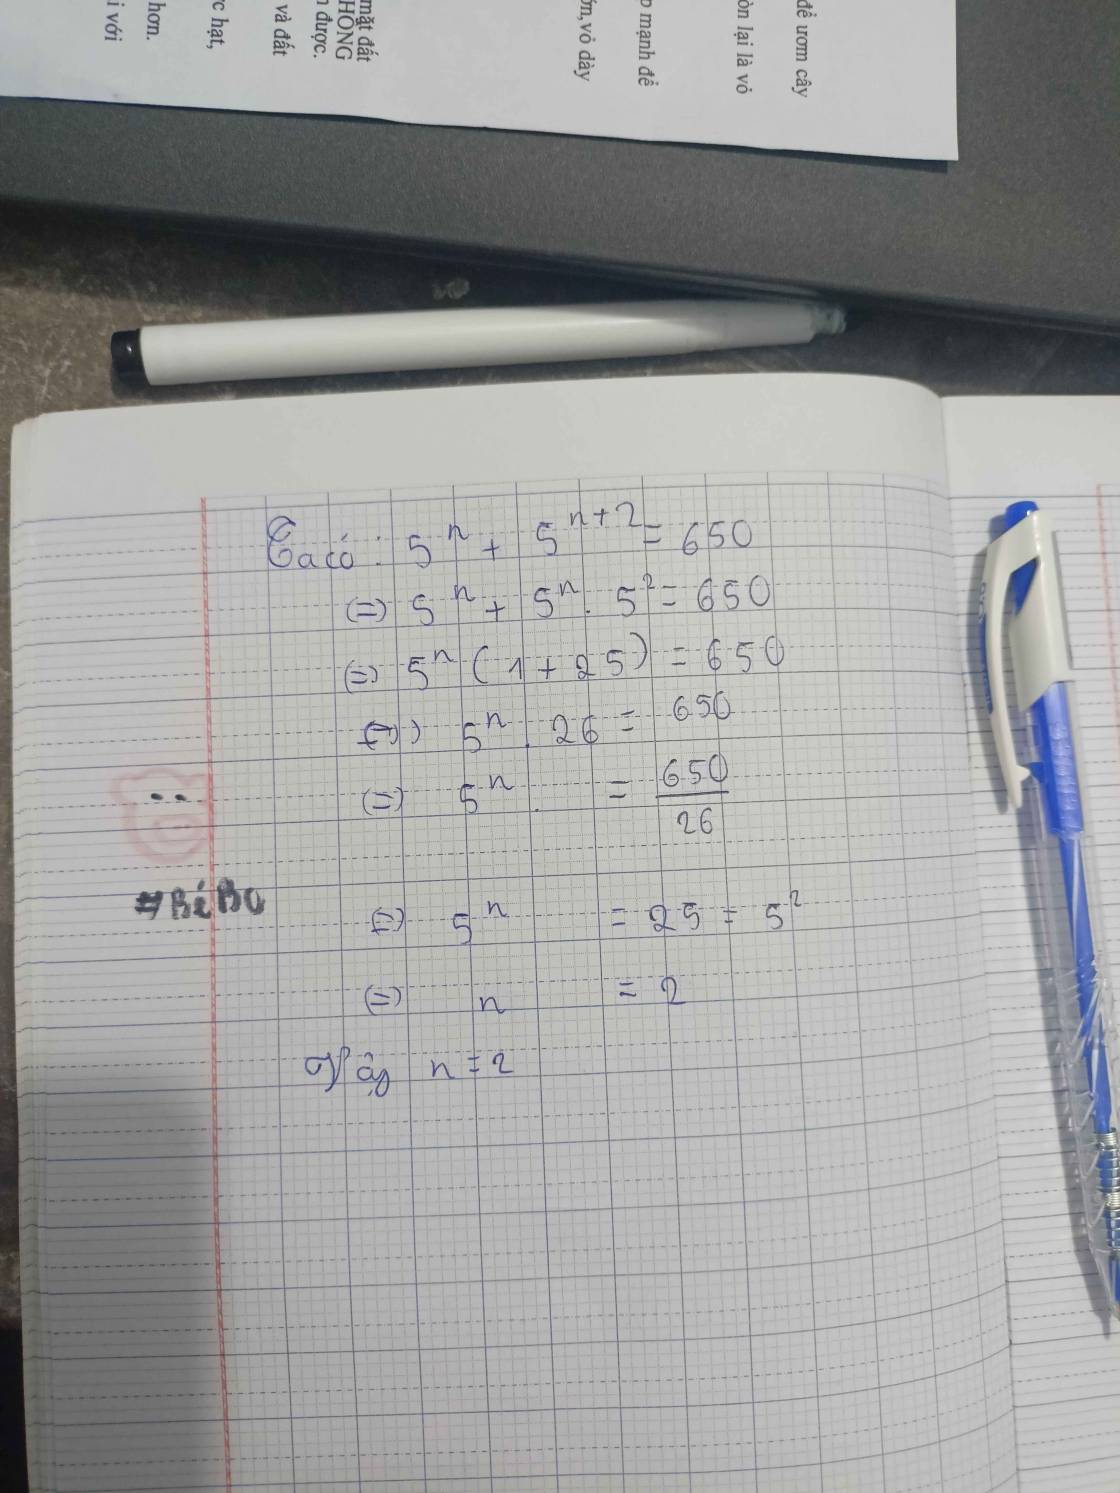 để ươm cây
òn lại là vỏ
p mạnh để
ớn, vỏ dày
mặt đất
HÔNG
n được.
và đất
rc hạt,
hơn.
i với
Ta có: 5^n + 5^{n+2} = 650
(=) 5^n + 5^n . 5^2 = 650
(=) 5^n (1 + 25) = 650
(=) 5^n . 26 = 650
(=) 5^n . = 650/26
#BéBo
(=) 5^n = 25 = 5^2
(=) n = 2
Vậy n = 2